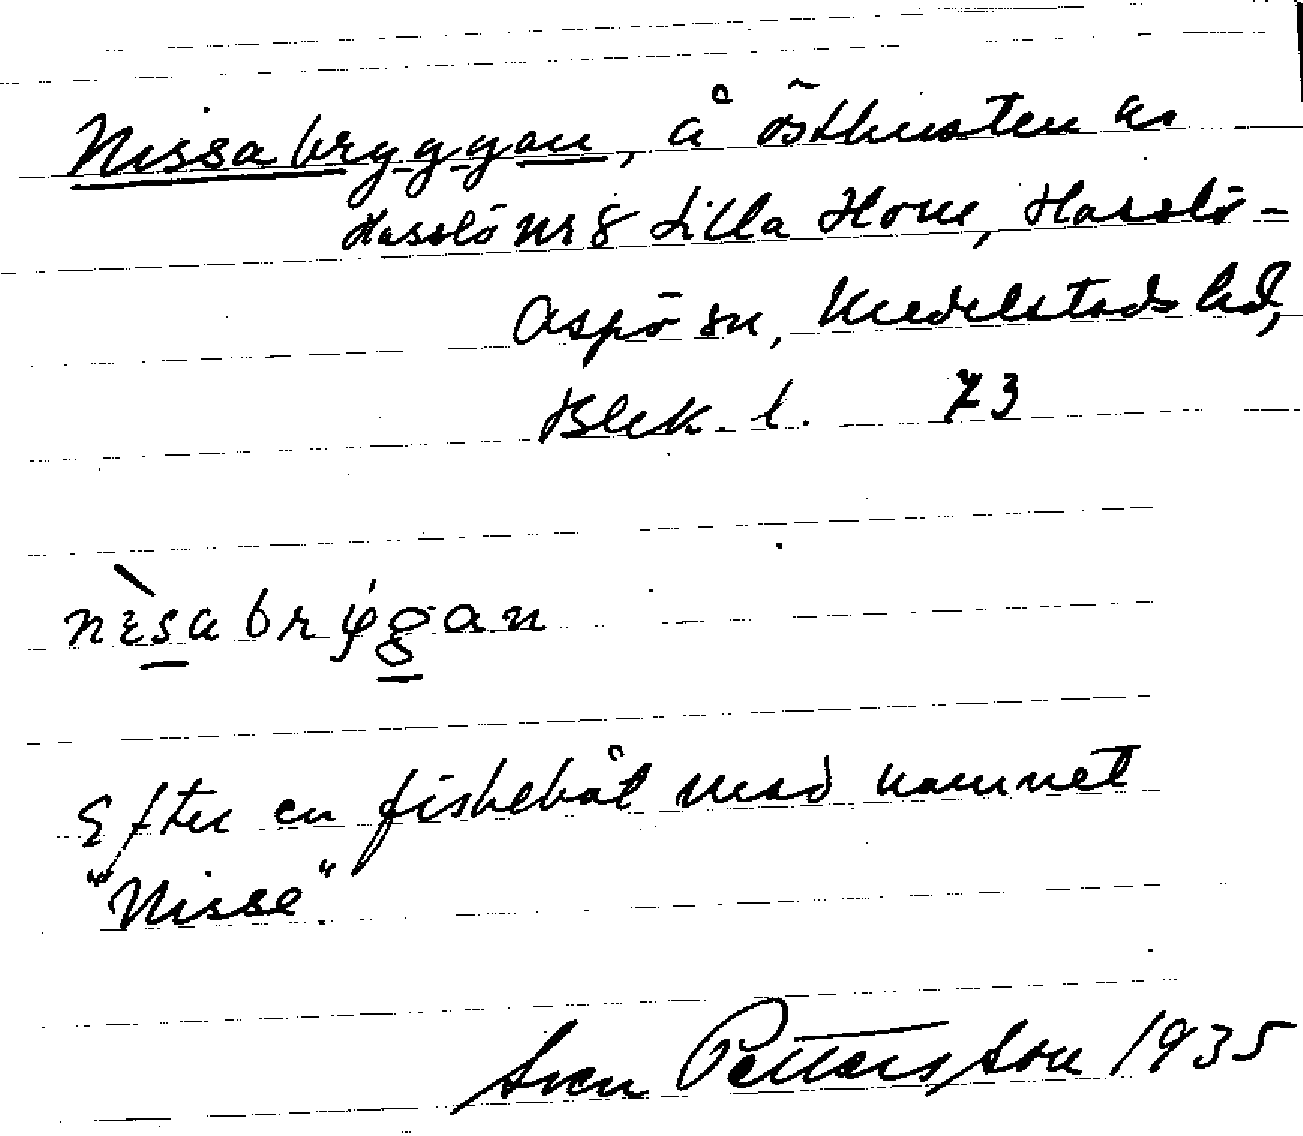 Nissabryggan, å östkusten av
Hasslö nr 8 Lilla Hove, Hasslö-
Aspö sn, Medelstads hd,
Blek. l. 73
nɛ̀sabrygan
Efter en fiskebåt med namnet
"Nisse".
Sven Pettersson 1935